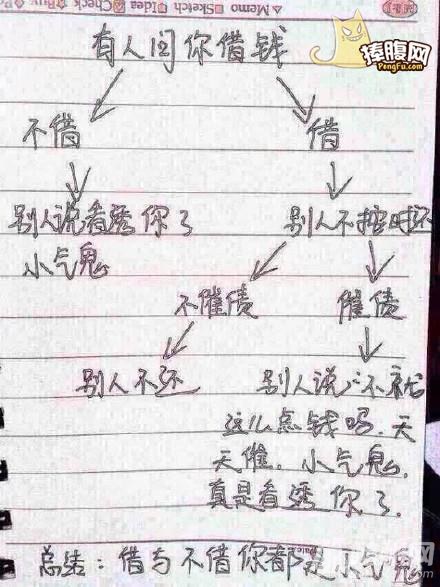 Memo Sketch Idea Check Buy
捧腹网
PengFu.com
有人问你借钱
不借
借
别人说看透你了
小气鬼
别人不按时还
不催债
催债
别人不还
别人说:不就
这么点钱吗,天
天催,小气鬼,
真是看透你了.
总结:借与不借你都是小气鬼